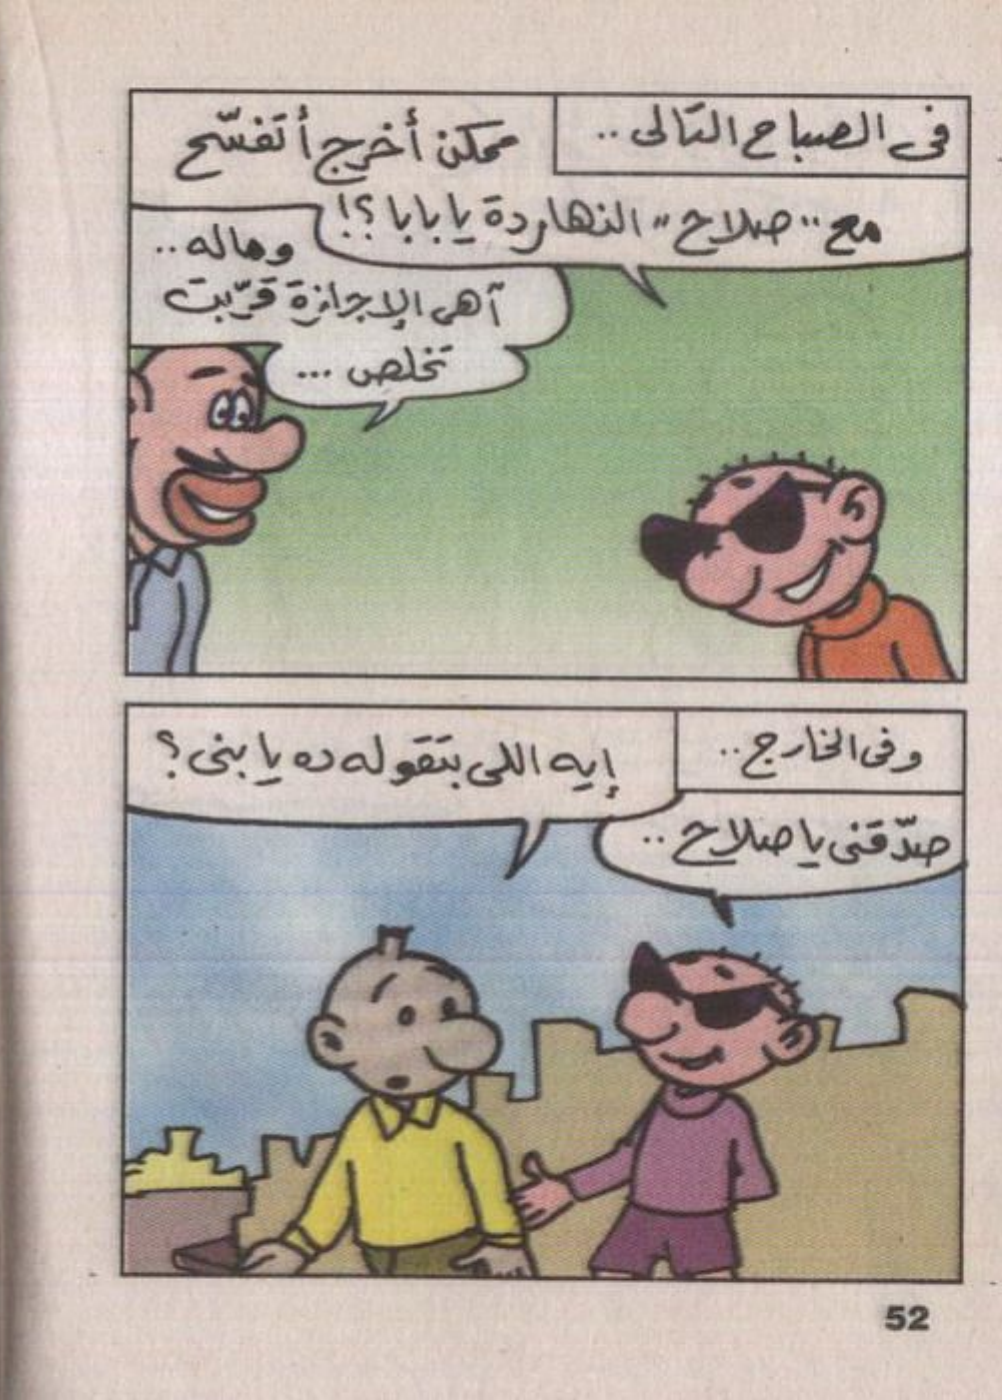 فى الصباح التالى ..
ممكن أخرج أتفسّح
مع "صلاح" النهاردة يا بابا ؟!
وماله ..
آهى الإجازة قرّبت
تخلص ...
وفى الخارج ..
صدّقنى يا صلاح ..
إيه اللى بتقوله ده يا بنى ؟
52